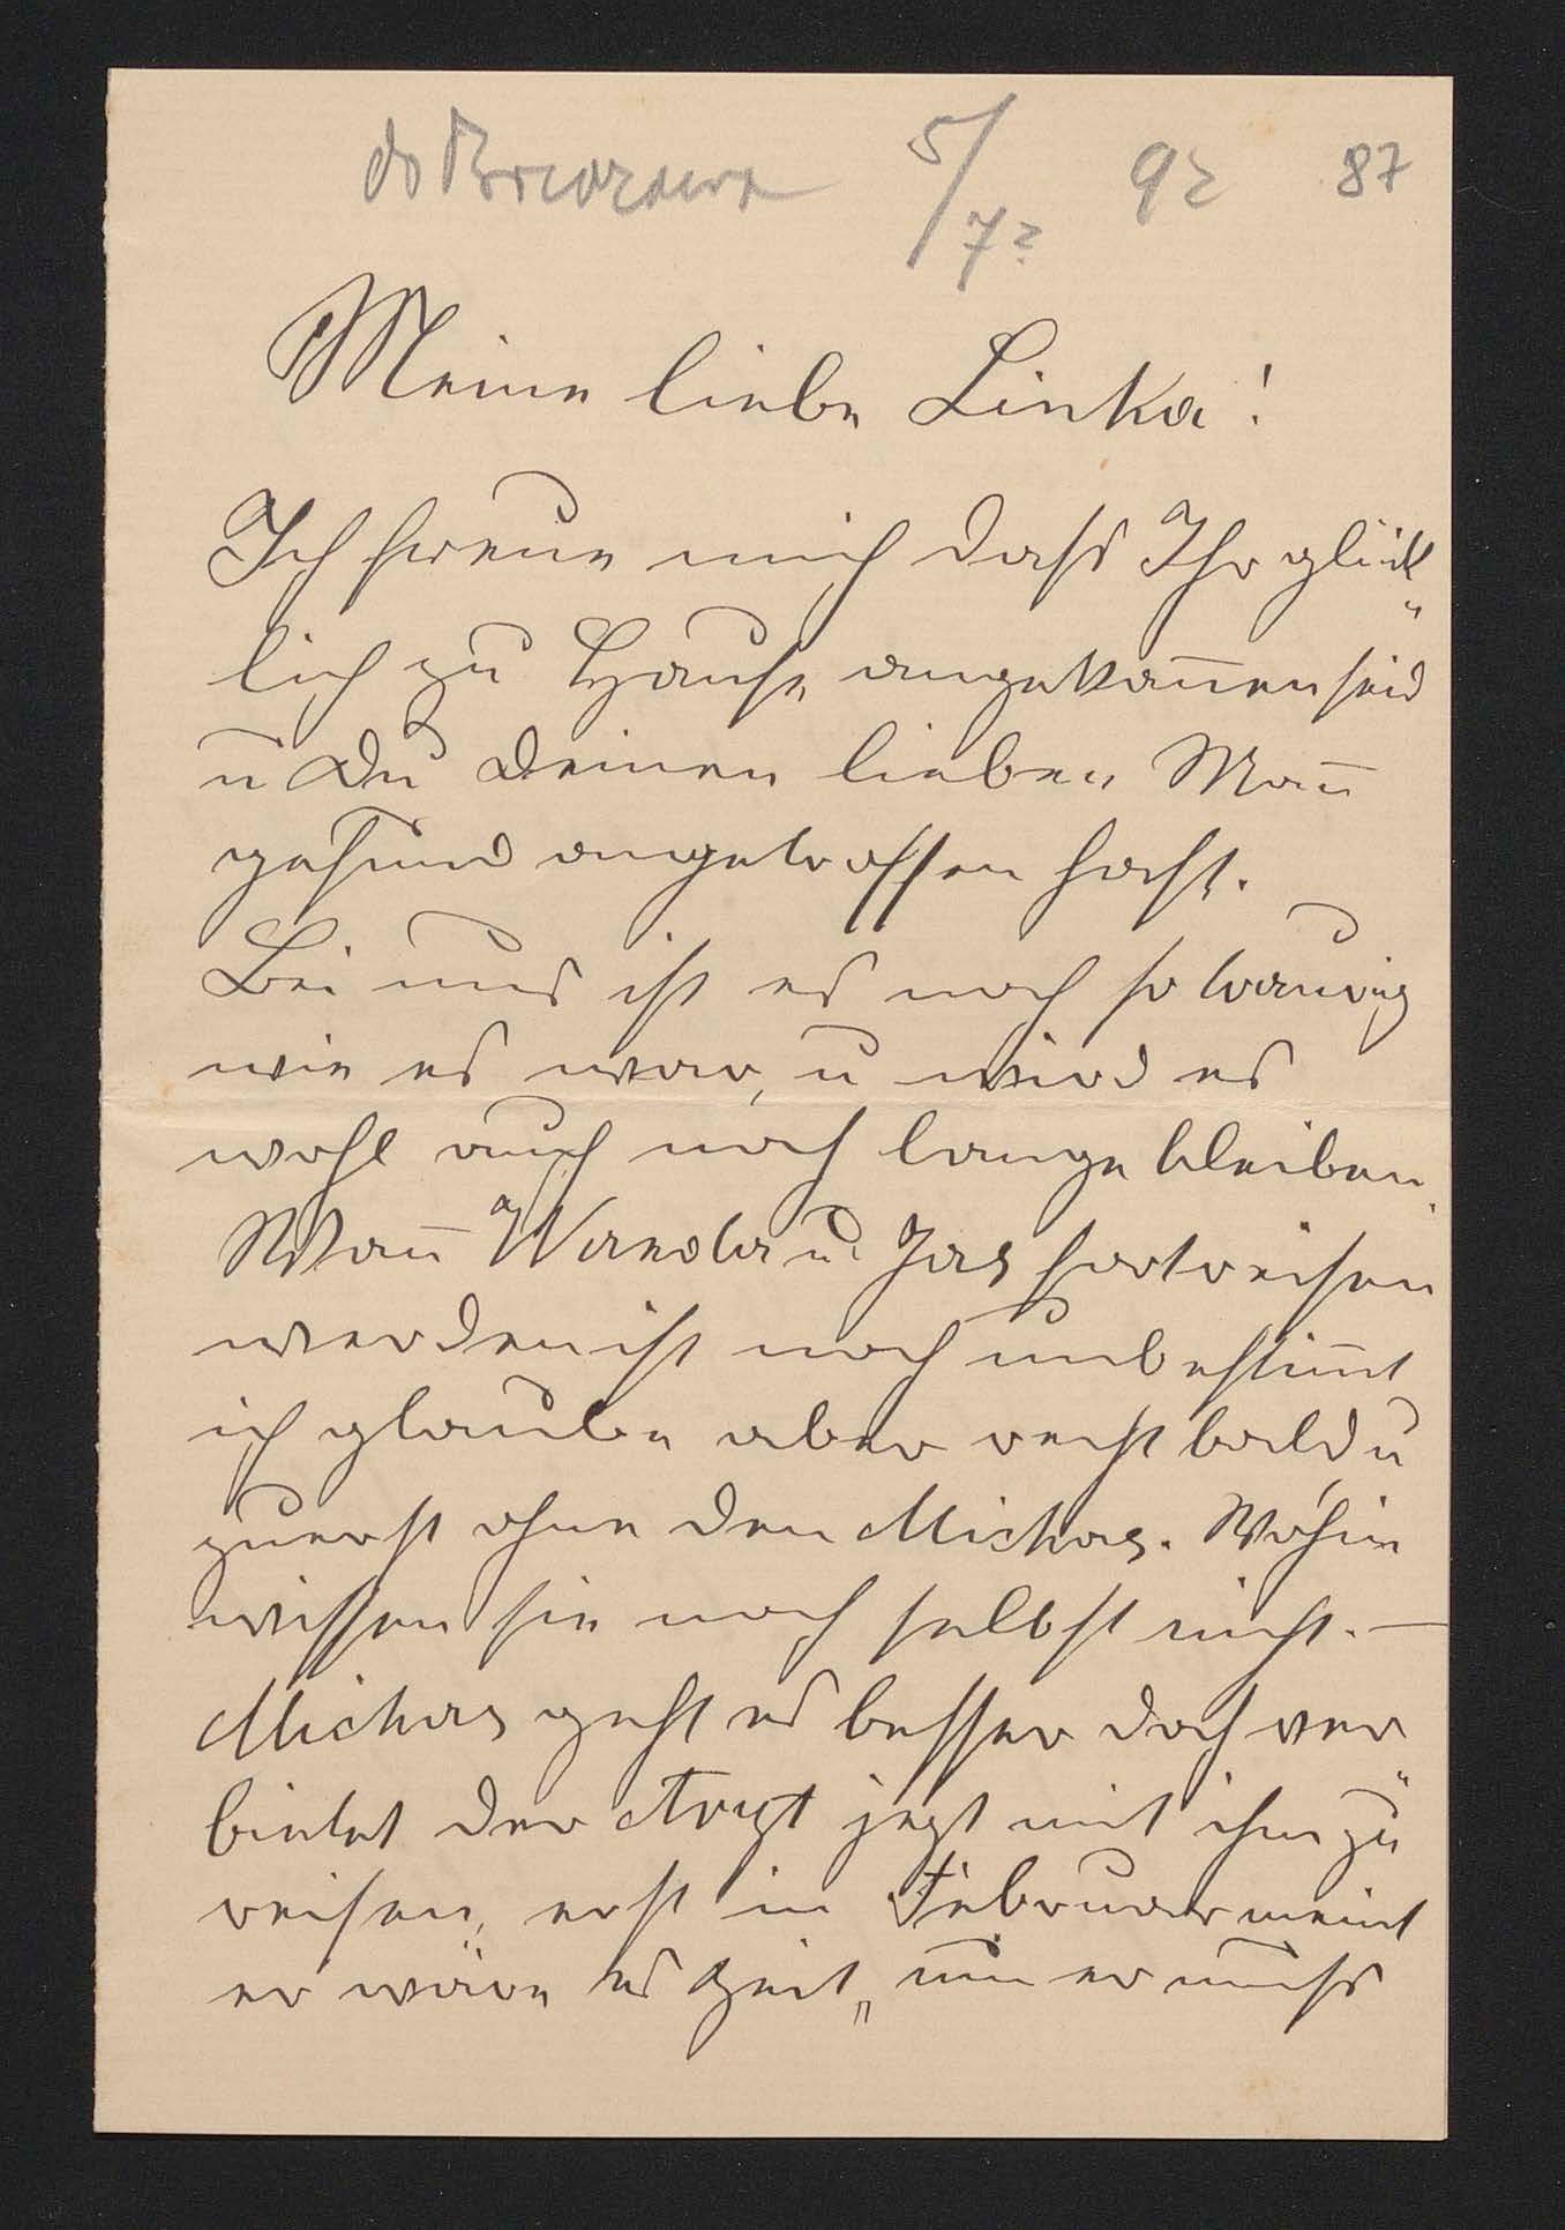 do 5/7? 92 87
Meine liebe Linka!
Ich freue mich dass Ihr glück„
lich zu Hause angekom̅en seid
u Du Deinen lieben Man̅
gesund angetroffen hast.
Bei uns ist es noch so traurig
wie es war, u wird es
wohl auch noch lange bleiben.
Wan̅ Wanda u. Jas fortreisen
werden ist noch unbestim̅t
ich glaube aber recht bald u
zuerst ohne den Michas. Wohin
wissen sie noch selbst nicht. —
Michas geht es besser doch ver„
bietet der Arzt jezt mit ihm zu
reisen, erst in Februar meint
er wäre es Zeit, nun er muss